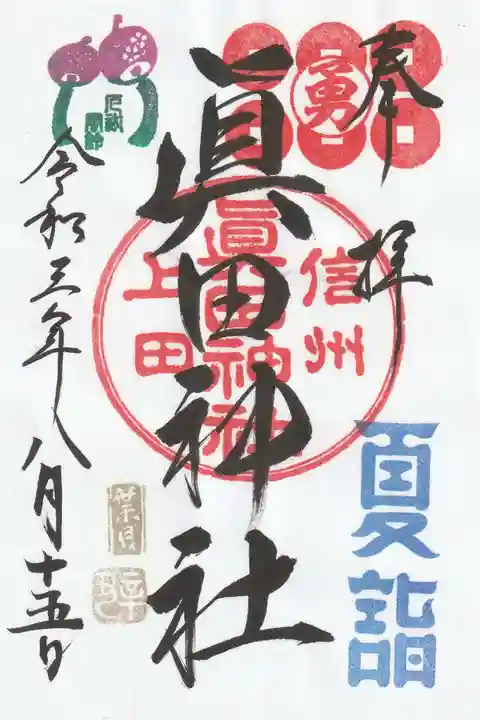 奉拝
勇
信州
眞田神社
上田
夏詣
眞田神社
葉月
令和三年八月十五日